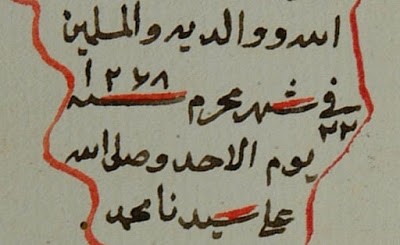 الله ووالديه والمسلمين
في شهر محرم سنة ١٢٦٨
٢٢
يوم الاحد وصلى الله
على سيدنا محمد.